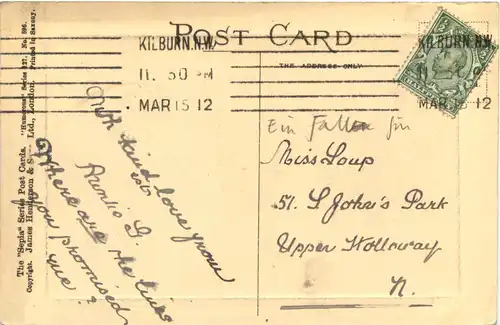 POST CARD
THE ADDRESS ONLY
KILBURN.N.W.
11. 50 PM
MAR 15 12
KILBURN.N.W.
MAR 15 12
The "Sepia" Series Post Cards. "Humorous" Series 127. No. 596.
Copyright. James Henderson & Sons Ltd., London. Printed in Saxony.
With kind love from
Auntie G.
Where are the lines
you promised
me?
Ein für
Miss Loup
57. St John's Park
Upper Holloway
N.